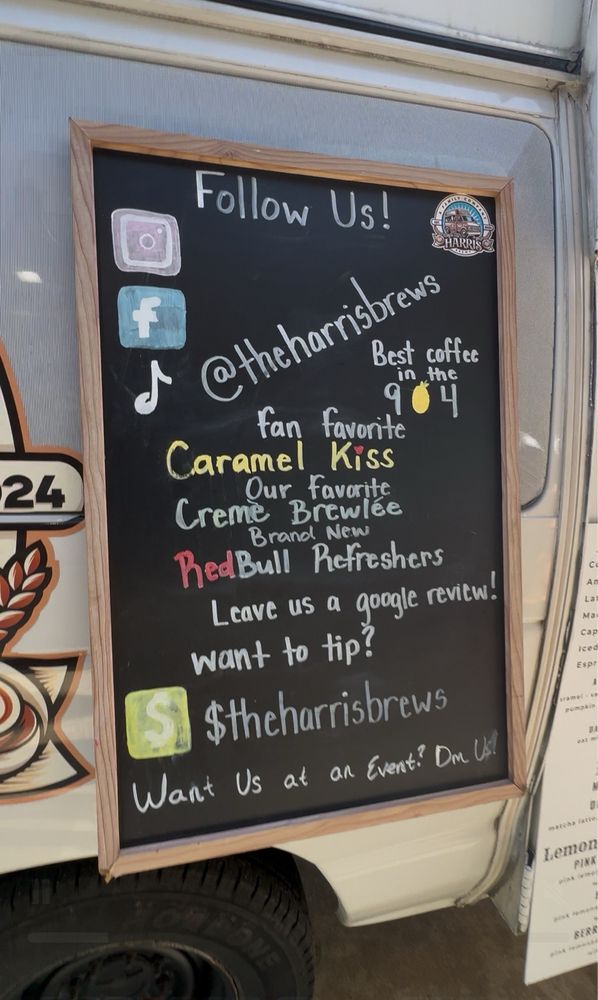 Follow Us!
A FAMILY COMPANY
HARRIS
@theharrisbrews
Best coffee
in the
904
fan favorite
Caramel Kiss
Our favorite
Creme Brewlée
Brand New
RedBull Refreshers
Leave us a google review!
want to tip?
$
$theharrisbrews
Want Us at an Event? Dm Us!
024
Lemon
PINK